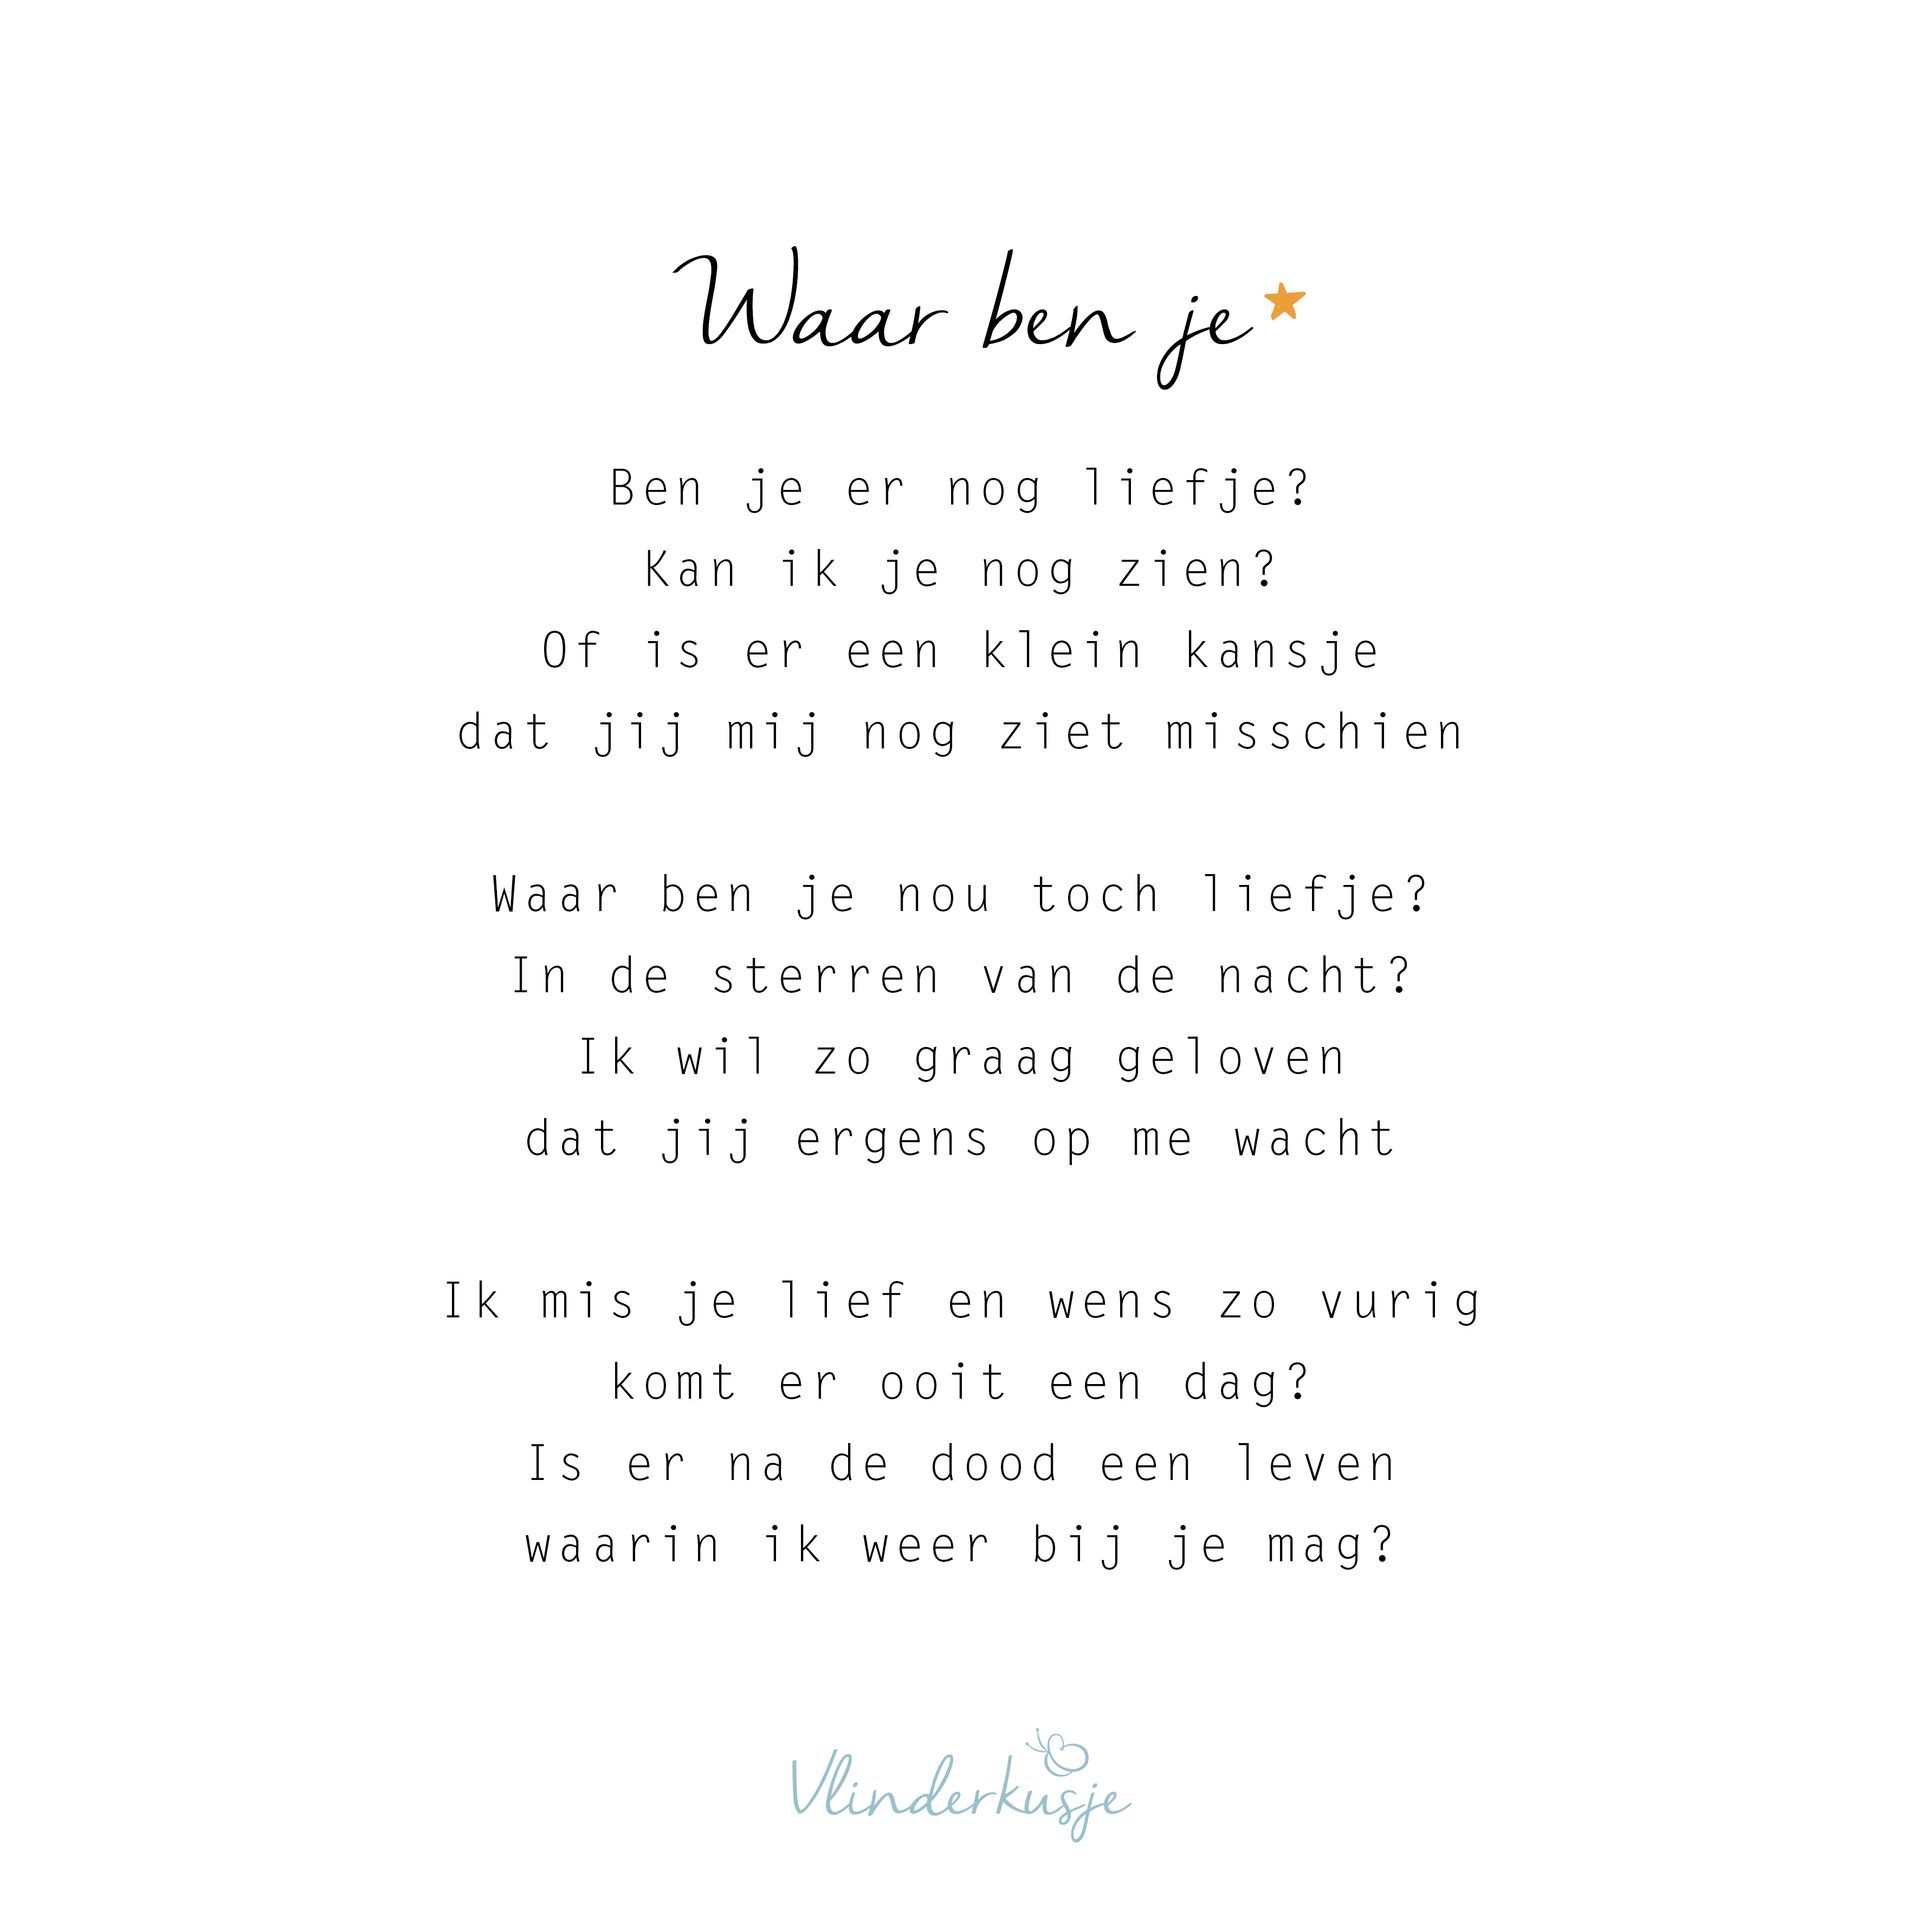 Waar ben je
Ben je er nog liefje?
Kan ik je nog zien?
Of is er een klein kansje
dat jij mij nog ziet misschien
Waar ben je nou toch liefje?
In de sterren van de nacht?
Ik wil zo graag geloven
dat jij ergens op me wacht
Ik mis je lief en wens zo vurig
komt er ooit een dag?
Is er na de dood een leven
waarin ik weer bij je mag?
Vlinderkusje